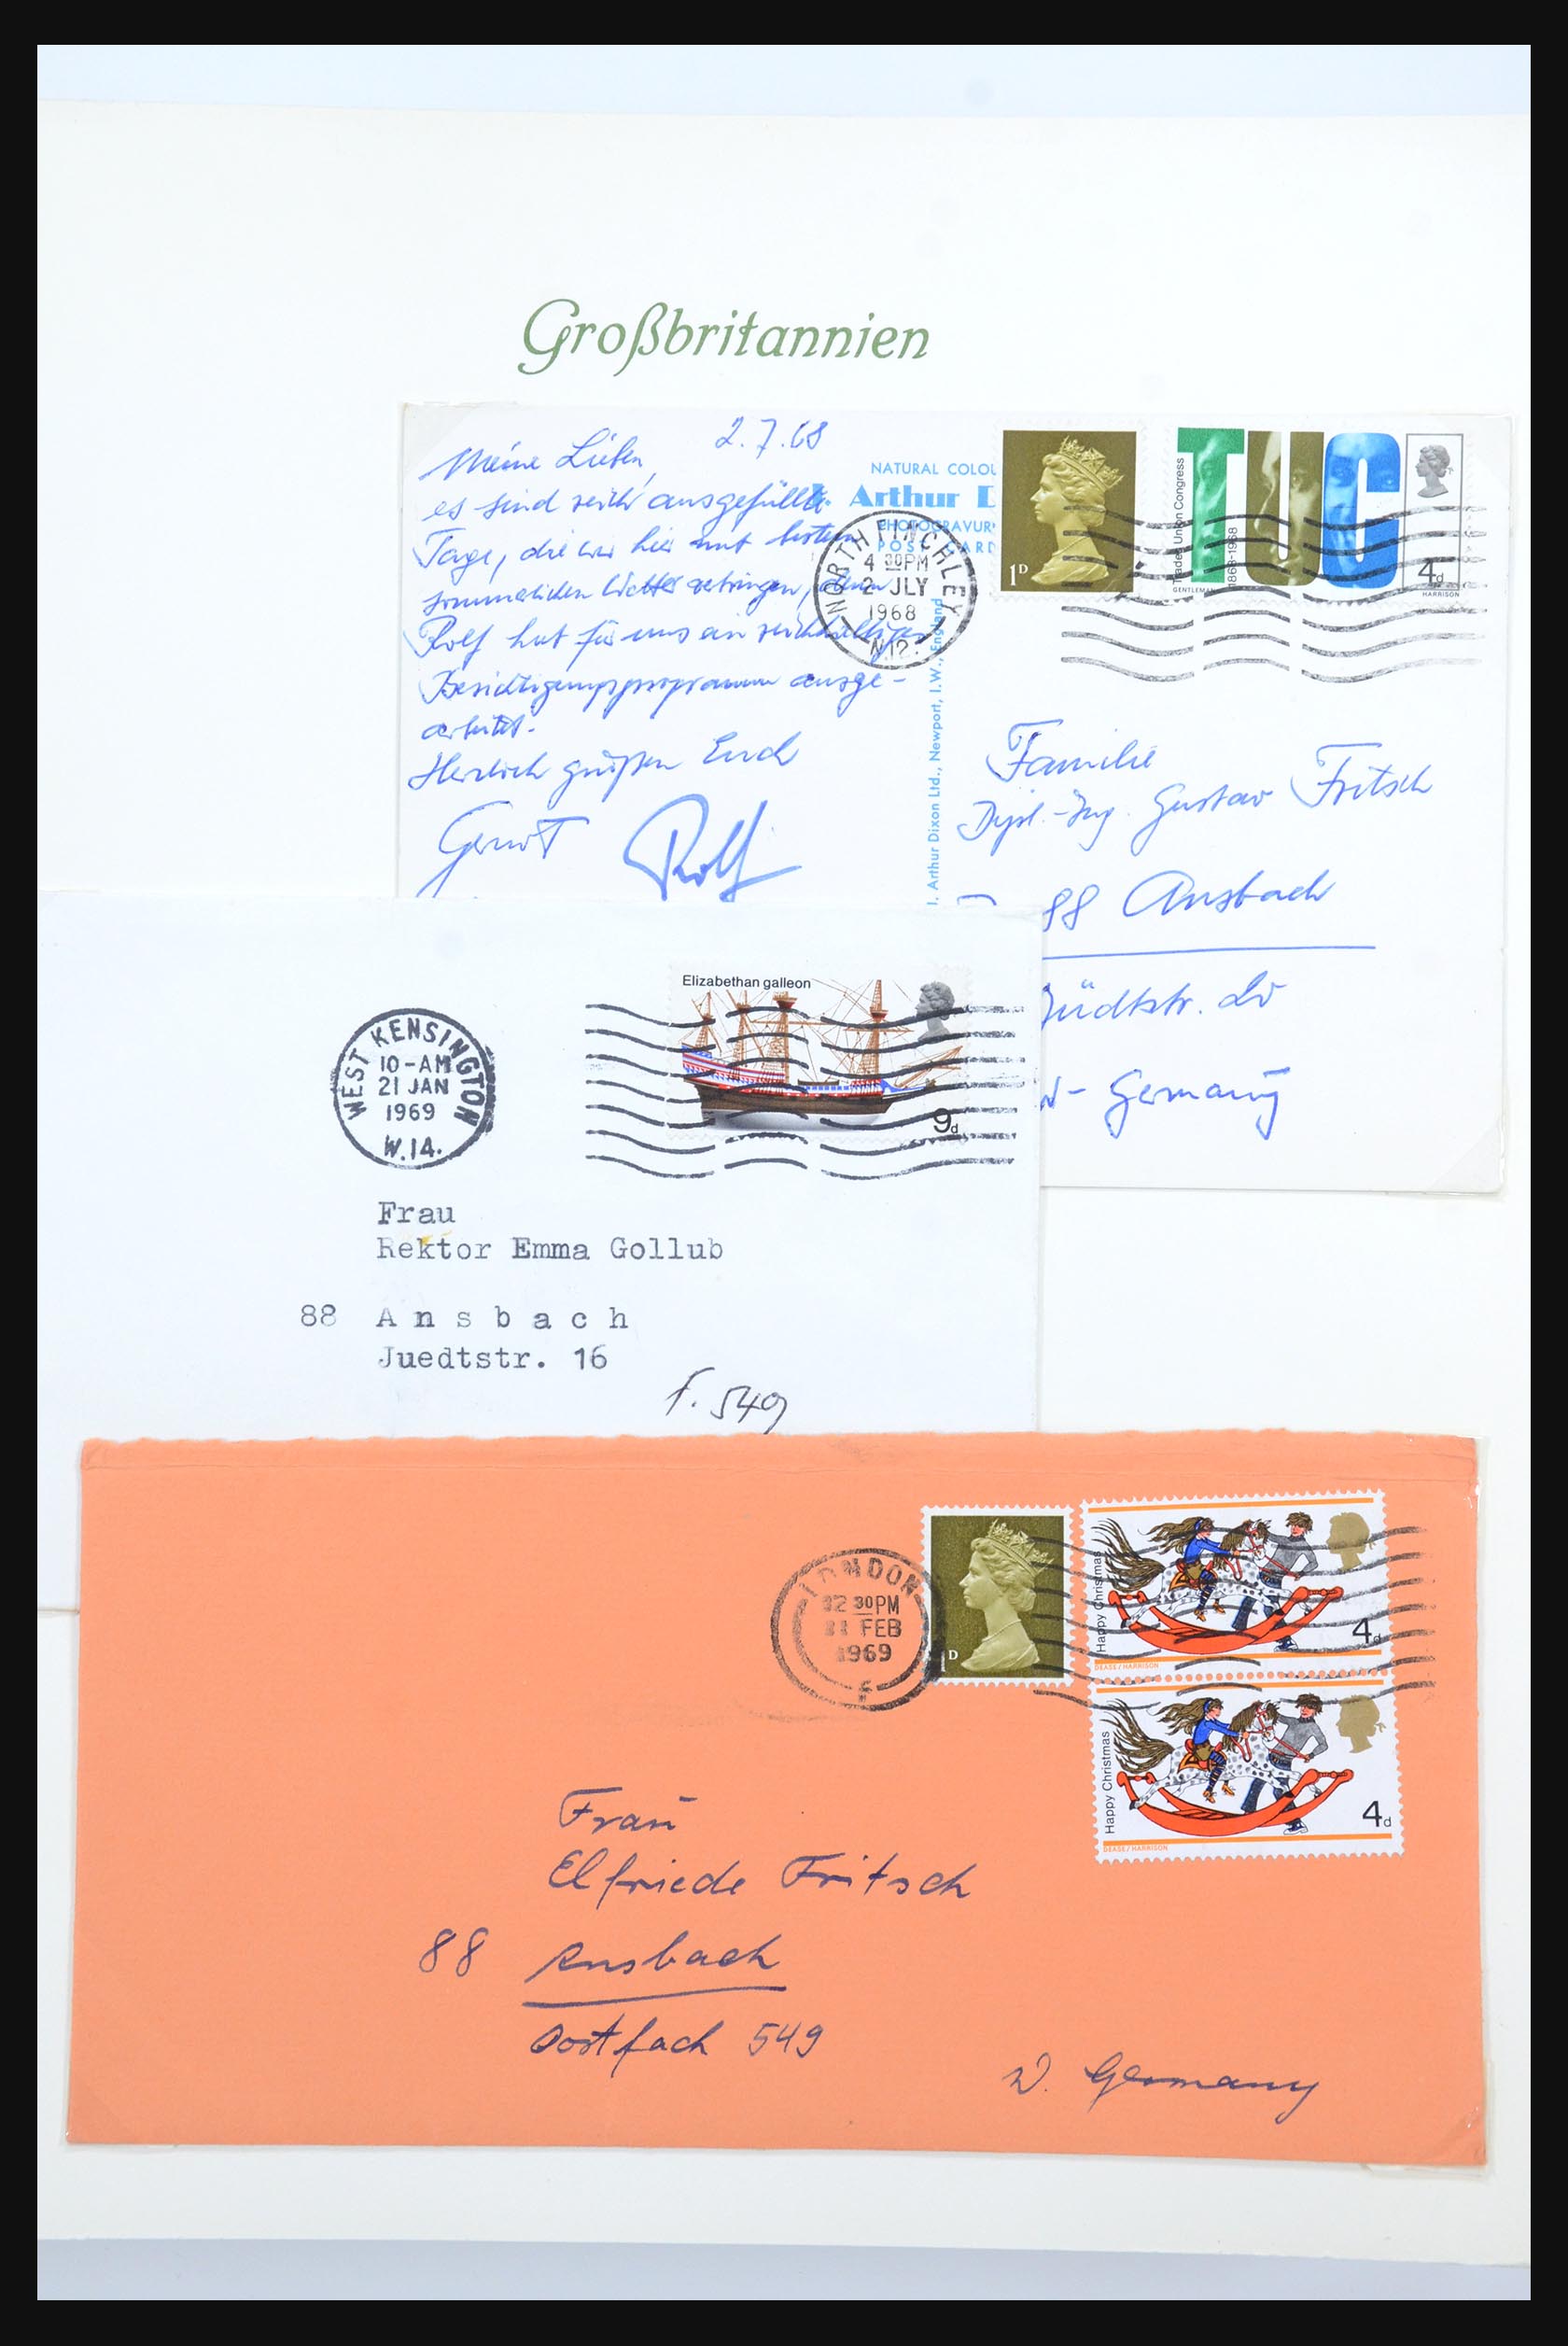 Großbritannien
2.7.68
Meine Lieben,
es sind reich ausgefüllte
Tage, die wir hier mit bestem
sommerlichen Wetter verbringen, denn
Rolf hat für uns ein reichhaltiges
Besichtigungsprogramm ausge-
arbeitet.
Herzlich grüßen Euch
Gernot Rolf
NATURAL COLOU
J. Arthur D
PHOTOGRAVUR
POST CARD
J. Arthur Dixon Ltd., Newport, I.W., England
NORTH FINCHLEY
4 30PM
2 JLY
1968
N.12.
1D
TUC
Trades Union Congress
1868-1968
4d
GENTLEMAN
HARRISON
Familie
Dipl.-Ing. Gustav Fritsch
88 Ansbach
Jüdtstr.
W-Germany
Elizabethan galleon
9d
WEST KENSINGTON
10-AM
21 JAN
1969
W.14.
Frau
Rektor Emma Gollub
88 Ansbach
Juedtstr. 16
F. 549
LONDON
12 30PM
11 FEB
1969
F
1D
Happy Christmas
4d
DEASE/HARRISON
Happy Christmas
4d
DEASE/HARRISON
Frau
Elfriede Fritsch
88 Ansbach
Postfach 549
W. Germany